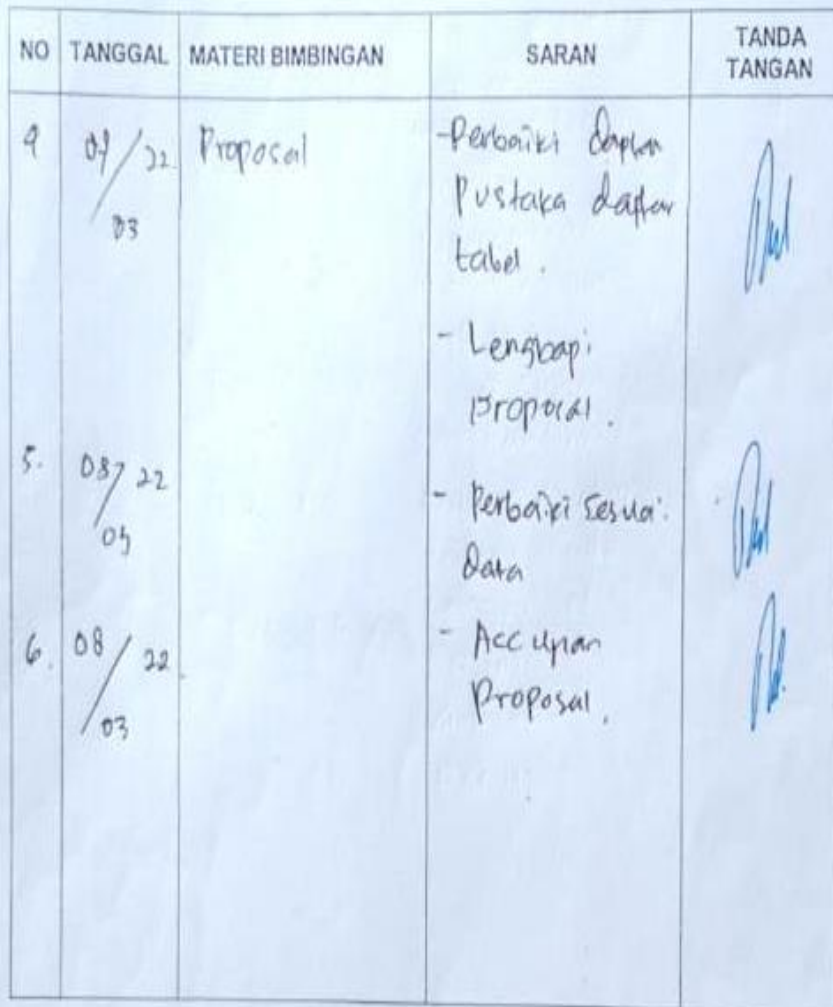 NO TANGGAL MATERI BIMBINGAN SARAN TANDA TANGAN
4 07/22 Proposal -Perbaiki Daftar
03 Pustaka daftar
tabel.
- Lengkapi
Proposal.
5. 08/22 - Perbaiki Sesuai
03 Data
6. 08/22 - Acc Ujian
03 Proposal.